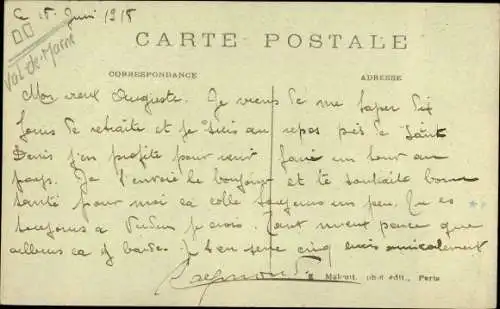 Ce 15 Juin 1915
Val-de-Marne
CARTE POSTALE
CORRESPONDANCE
ADRESSE
Mon vieux Auguste. Je viens de me taper dix
jours de retraite et je suis au repos près de Saint
Denis j'en profite pour venir faire un tour au
pays. Je t'envoie le bonjour et te souhaite bonne
santé pour moi ça colle toujours un peu. Tu es
toujours à Verdun je crois. Tant mieux parce que
ailleurs ça y barde. Je t'en serre cinq bien amicalement
phot édit., Paris